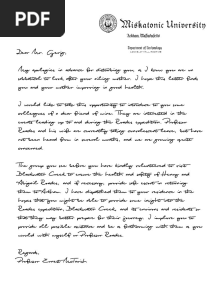 PDF
Miskatonic University
Arkham, Massachusetts
Department of Archaeology
Dear Mr. Georg,
My apologies in advance for disturbing you, as I know you are so
to look after your ailing mother. I hope this letter finds
you and your mother improving in good health.
I would like to take this opportunity to introduce to you some
colleagues of a dear friend of mine. They are interested in the
events leading up to and during the Roades expedition. Professor
Roades and his wife are currently taking leave, but have
not been heard from in several months, and we are growing quite
concerned.
The group you see before you have kindly volunteered to visit
Blackwater Creek to ensure the health and safety of Henry and
Abigail Roades, and if necessary, provide safe escort in returning
them to Arkham. I have dispatched them to your residence in the
hopes that you might be able to provide some insight into the
Roades expedition, Blackwater Creek, and its environs and residents so
that they may better prepare for their journey. I implore you to
provide all possible assistance and be as forthcoming with them as you
would with myself or Professor Roades.
Regards,
Professor